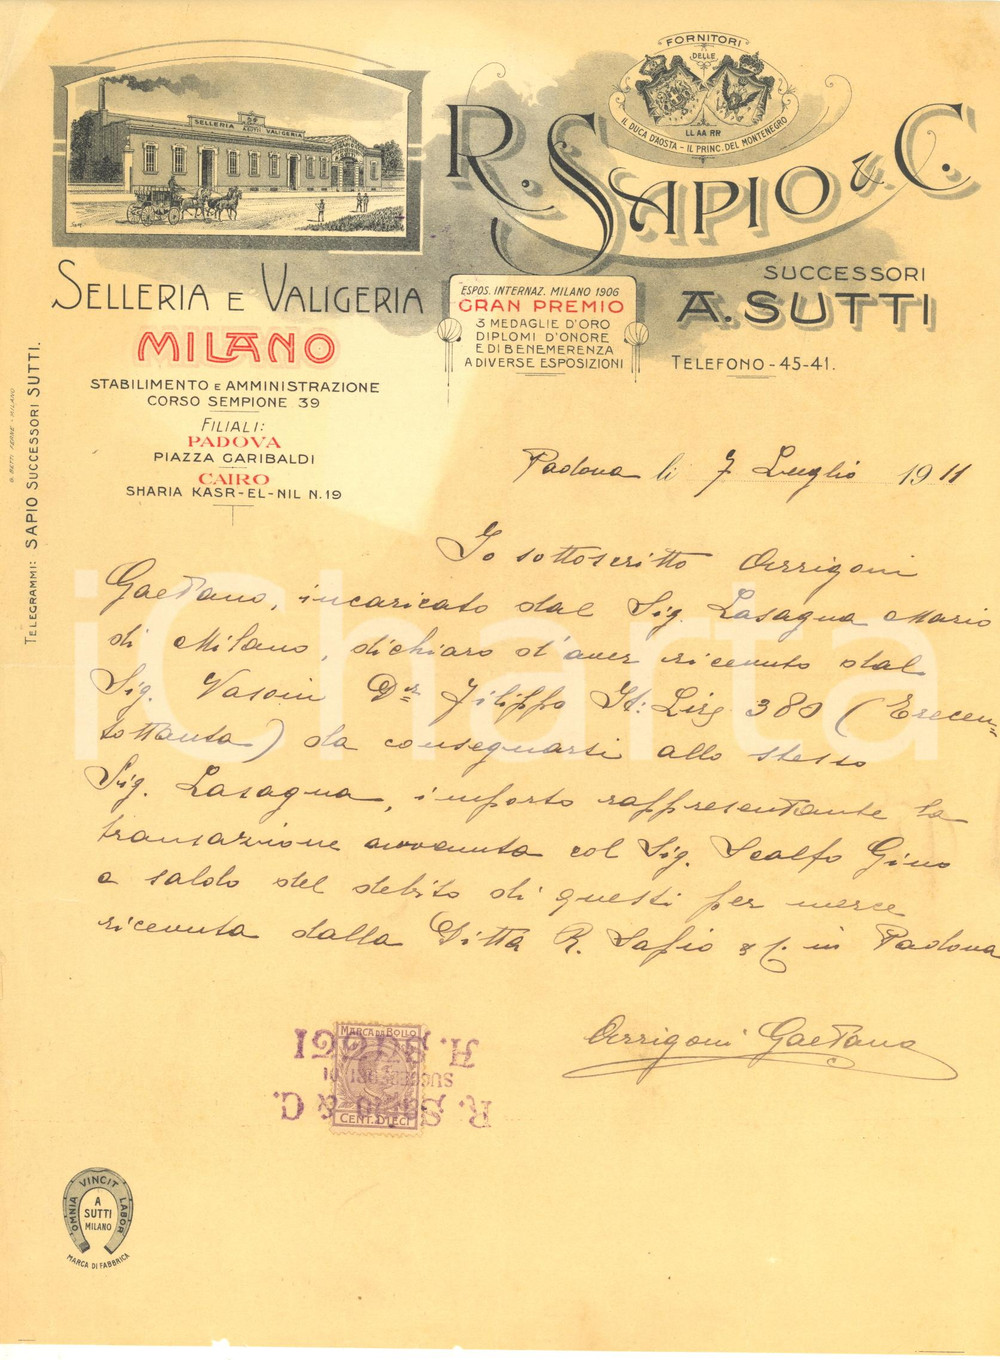 SELLERIA VALIGERIA
FORNITORI
DELLE
LL AA RR
IL DUCA D'AOSTA - IL PRINC. DEL MONTENEGRO
R. SAPIO & C.
SUCCESSORI
A. SUTTI
TELEFONO - 45-41.
SELLERIA E VALIGERIA
MILANO
STABILIMENTO E AMMINISTRAZIONE
CORSO SEMPIONE 39
FILIALI:
PADOVA
PIAZZA GARIBALDI
CAIRO
SHARIA KASR-EL-NIL N. 19
ESPOS. INTERNAZ. MILANO 1906
GRAN PREMIO
3 MEDAGLIE D'ORO
DIPLOMI D'ONORE
E DI BENEMERENZA
A DIVERSE ESPOSIZIONI
TELEGRAMMI: SAPIO SUCCESSORI SUTTI.
Padova li 7 Luglio 1911
Io sottoscritto Arrigoni
Gaetano, incaricato dal Sig. Lasagna Mario
di Milano, dichiaro d'aver ricevuto dal
Sig. Vasoin Dr Filippo It: Lire 380 (Trecen=
tottanta) da consegnarsi allo stesso
Sig. Lasagna, importo rappresentante la
transazione avvenuta col Sig. Scalfo Gino
a saldo del debito di questi per merce
ricevuta dalla Ditta R. Sapio & C. in Padova
Arrigoni Gaetano
MARCA DA BOLLO
CENT. DIECI
R. SAPIO & C.
SUCCESSORI DI
A. SUTTI
OMNIA VINCIT LABOR
A
SUTTI
MILANO
MARCA DI FABBRICA
iCharta